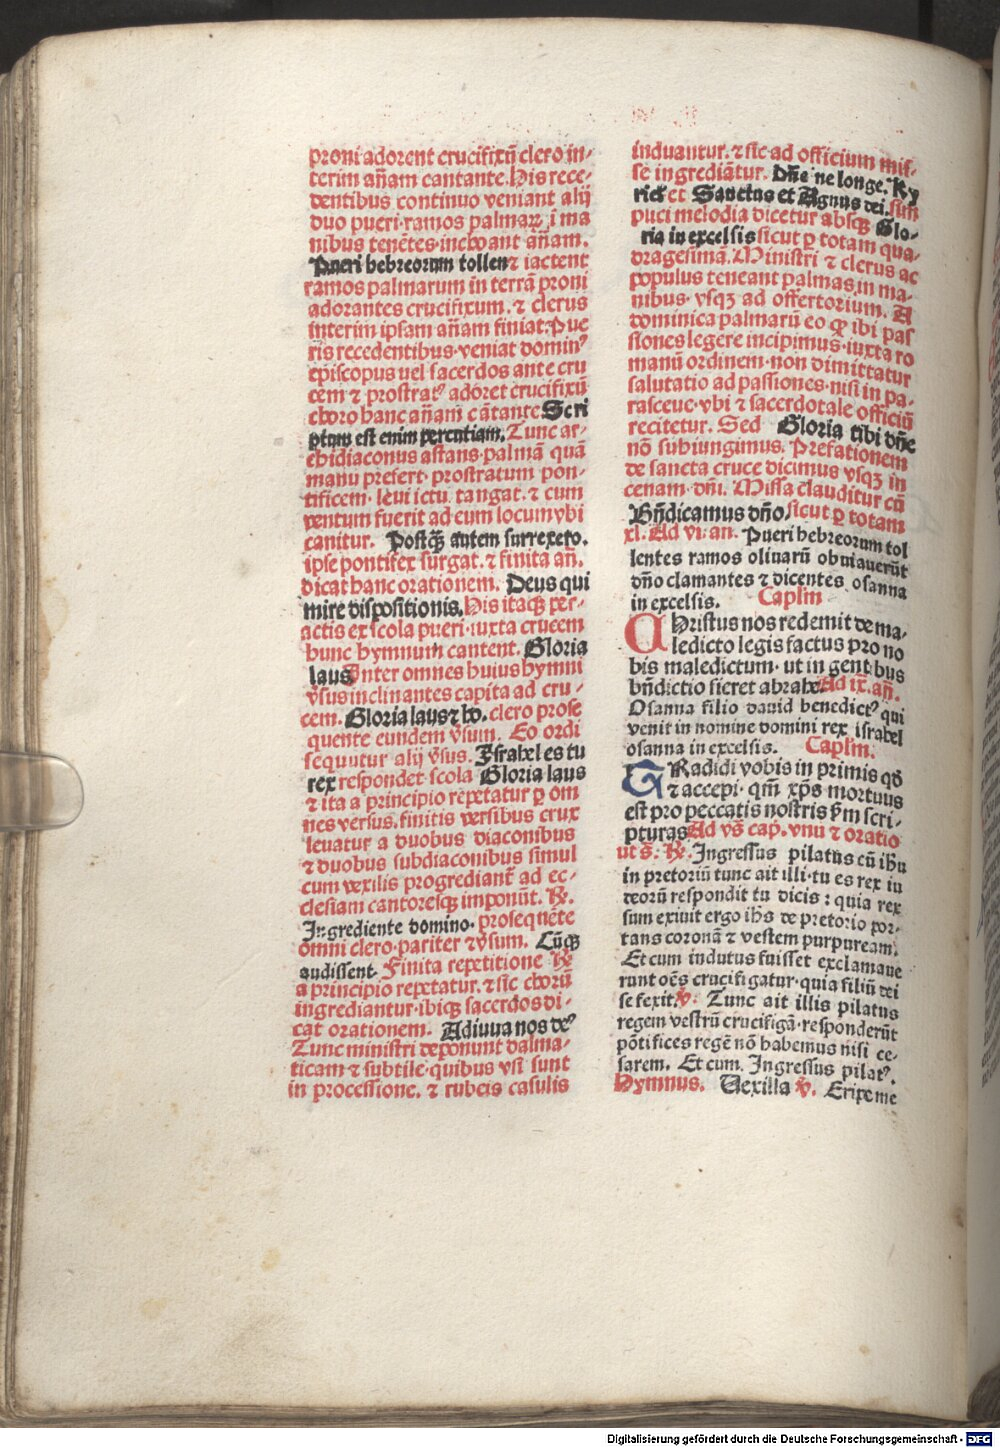 proni adorent crucifixū clero in-
terim añam cantante. His rece-
dentibus continuo veniant alij
duo pueri ramos palmaꝝ i ma
nibus tenētes incboant añam.
Pueri hebreorum tollenꝫ iactent
ramos palmarum in terrā proni
adorantes crucifixum. ⁊ clerus
interim ipsam añam finiat. Pue
ris recedentibus veniat domin⁹
episcopus uel sacerdos ante cru
cem ⁊ prostrat⁹ adoret crucifixū
choro hanc añam cātante Scri
ptum est enim percutiam. Tunc ar-
chidiaconus astans palmā quā
manu prefert prostratum pon-
tificem leui ictu tangat. ⁊ cum
ventum fuerit ad eum locum vbi
canitur. Postꝙ̃ autem surrexero.
ipse pontifex surgat. ⁊ finita añ.
dicat hanc orationem. Deus qui
mire dispositionis. His itaqꝫ per-
actis ex scola pueri iuxta crucem
hunc hymnum cantent. Gloria
laus Inter omnes huius hymni
v̄sus inclinantes capita ad cru-
cem. Gloria laus ⁊ ho. clero prose
quente eundem v̄sum. Eo ordi
sequutur alij v̄sus. Israhel es tu
rex respondet scola Gloria laus
⁊ ita a principio repetatur ꝑ om
nes versus. finitis versibus crux
leuatur a duobus diaconibus
⁊ duobus subdiaconibus simul
cum vexilis progrediant̄ ad ec-
clesiam cantoresqꝫ imponūt. ℟.
Ingrediente domino. prosequēte
omni clero pariter ⁊ v̄sum. Cūqꝫ
audissent. Finita repetitione ℟
a principio repetatur. ⁊ sic chorū
ingrediantur ibiqꝫ sacerdos di-
cat orationem. Adiuua nos de⁹
Tunc ministri deponunt dalma-
ticam ⁊ subtile quibus vsi sunt
in processione. ⁊ rubeis casulis
induantur. ⁊ sic ad officium mis-
se ingrediātur. Dñe ne longe. Ky
rieł et Sanctus et Agnus dei. sun
puci melodia dicetur absqꝫ Glo-
ria in excelsis sicut ꝑ totam qua-
dragesimā. Ministri ⁊ clerus ac
populus teneant palmas in ma-
nibus vsqꝫ ad offertorium. A
dominica palmarū eo ꝙ ibi pas
siones legere incipimus iuxta ro
manū ordinem non dimittatur
salutatio ad passiones nisi in pa-
rasceue vbi ⁊ sacerdotale officiū
recitetur. Sed Gloria tibi dñe
nō subiungimus. Prefationem
de sancta cruce dicimus vsqꝫ in
cenam dñi. Missa clauditur cū
Bñdicamus dño sicut ꝑ totam
xl. Ad vi. an. Pueri hebreorum tol
lentes ramos oliuarū obuiauerūt
dño clamantes ⁊ dicentes osanna
in excelsis. Caplm
CHristus nos redemit de ma-
ledicto legis factus pro no
bis maledictum ut in gentibus
bñdictio fieret abrahe Ad ix. añ.
Osanna filio dauid benedict⁹ qui
venit in nomine domini rex israhel
osanna in excelsis. Caplm.
TRadidi vobis in primis qđ
⁊ accepi qm̄ xp̄s mortuus
est pro peccatis nostris s̄m scri-
pturas Ad v̄s cap. vnū ⁊ oratio
ut s̄. ℟. Ingressus pilatus cū ihu
in pretoriū tunc ait illi tu es rex iu
deorū respondit tu dicis: quia rex
sum exiuit ergo ihs de pretorio por-
tans coronā ⁊ vestem purpuream.
Et cum indutus fuisset exclamaue
runt oēs crucifigatur quia filiū dei
se fexit. ℣. Tunc ait illis pilatus
regem vestrū crucifigā responderūt
pōtifices regē nō habemus nisi ce-
sarem. Et cum. Ingressus pilat⁹.
Hymnus. Vexilla ℣. Eripe me
Digitalisierung gefördert durch die Deutsche Forschungsgemeinschaft - DFG